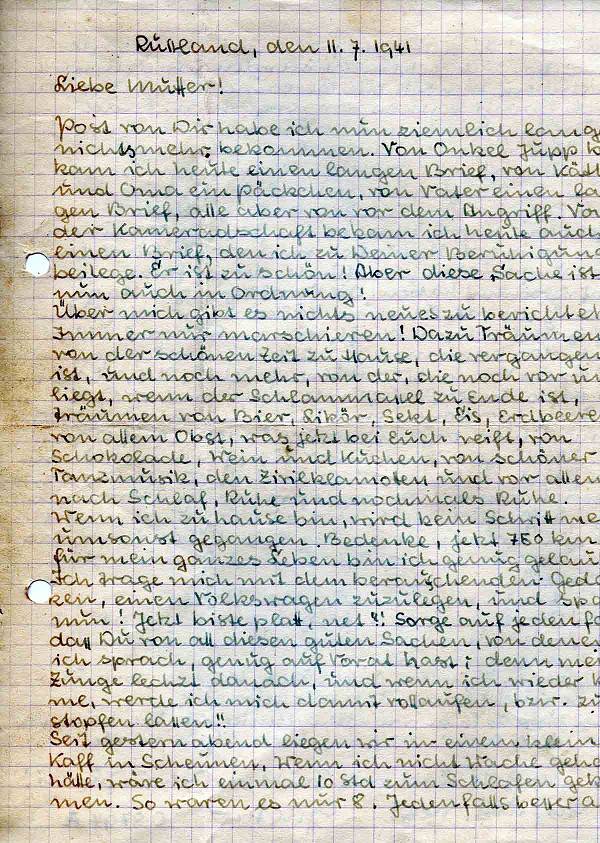 Rußland, den 11. 7. 1941
Liebe Mutter!
Post von Dir habe ich nun ziemlich lang
nichts mehr bekommen. Von Onkel Jupp b
kam ich heute einen langen Brief, von Käth
und Oma ein Päckchen, von Vater einen la
gen Brief, alle aber von vor dem Angriff. Vo
der Kameradschaft bekam ich heute auch
einen Brief, den ich zu Deiner Beruhigung
beilege. Er ist zu schön! Aber diese Sache ist
nun auch in Ordnung!
Über mich gibt es nichts neues zu berichten
Immer nur marschieren! Dazu Träumen
von der schönen Zeit zu Hause, die vergangen
ist, und noch mehr, von der, die noch vor un
liegt, wenn der Schlammassel zu Ende ist,
träumen von Bier, Likör, Sekt, Eis, Erdbeere
von allem Obst, was jetzt bei Euch reift, von
Schokolade, Wein und Kuchen, von schöner
Tanzmusik, den Zivilklamoten und vor allem
nach Schlaf, Ruhe und nochmals Ruhe.
Wenn ich zuhause bin, wird kein Schritt me
umsonst gegangen. Bedenke, jetzt 750 km
für mein ganzes Leben bin ich genug gelau
Ich trage mich mit dem berauschenden Geda
ken, einen Volkswagen zuzulegen, und spa
nun! Jetzt biste platt, net?! Sorge auf jeden fa
daß Du von all diesen guten Sachen, von dene
ich sprach, genug auf Vorat hast; denn mei
Zunge lechzt danach, und wenn ich wieder k
me, werde ich mich damit vollaufen, bzw. zu
stopfen lassen!!
Seit gestern abend liegen wir in einem klein
Kaff in Scheunen, wenn ich nicht Wache geha
hätte, wäre ich einmal 10 Std zum Schlafen gek
men. So waren es nur 8. Jedenfalls besser a